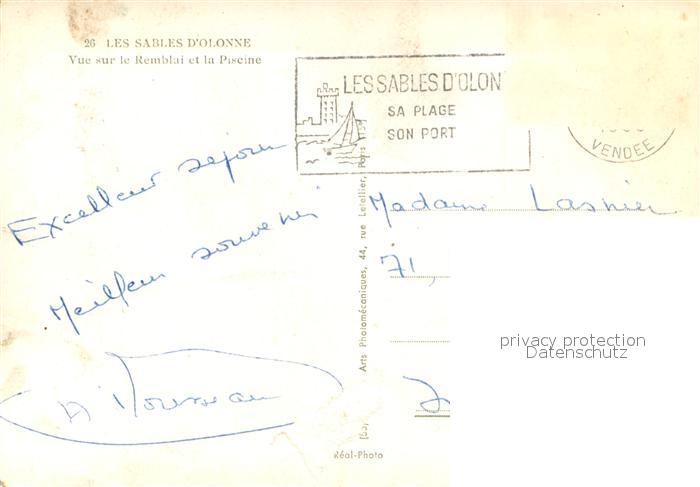 26 LES SABLES D'OLONNE
Vue sur le Remblai et la Piscine
LES SABLES D'OLON
SA PLAGE
SON PORT
VENDEE
Excellent sejour
Meilleur souvenir
Madame Lasnier
71,
Arts Photomécaniques, 44, rue Letellier, Paris
Réal-Photo
privacy protection
Datenschutz